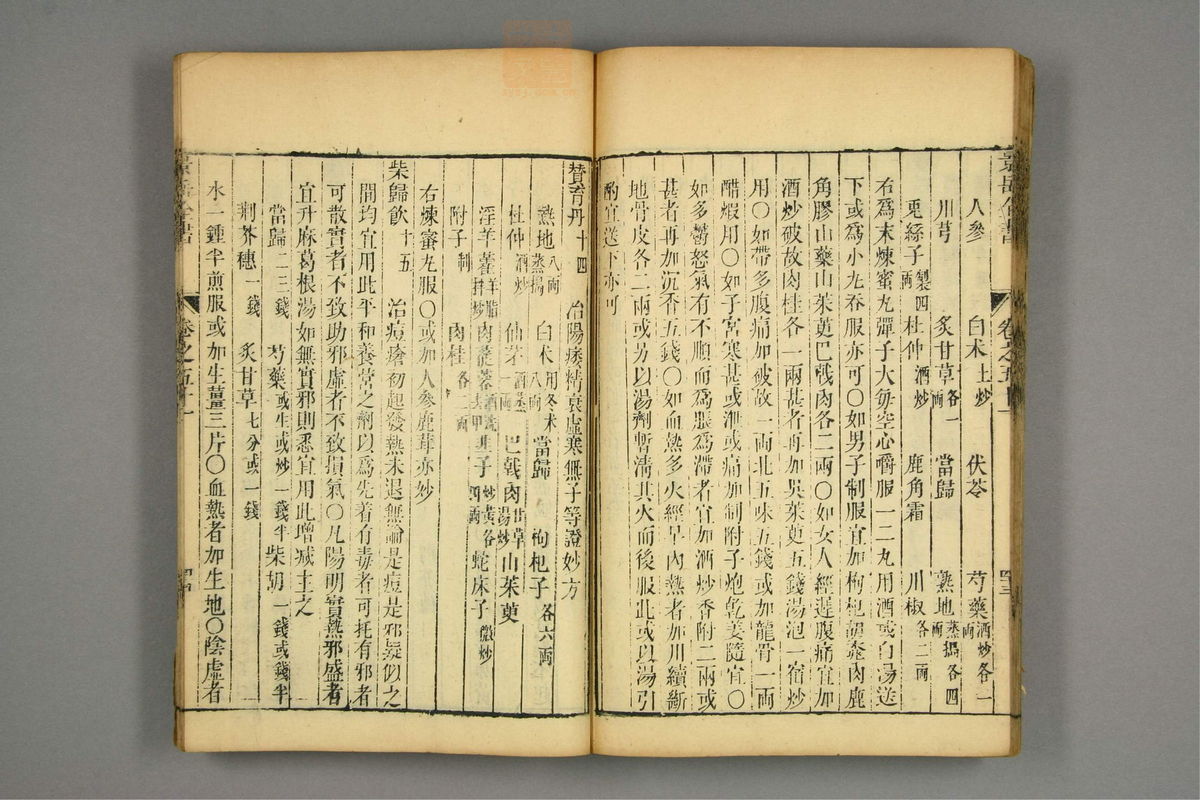 人參 白朮土炒 伏苓 芍藥酒炒各一兩
川芎 炙甘草各一兩 當歸 熟地蒸搗各四兩
兎絲子製四兩 杜仲酒炒 鹿角霜 川椒各二兩
右爲末煉蜜丸彈子大每空心嚼服一二丸用酒或白湯送
下或爲小丸吞服亦可〇如男子制服宜加枸杞胡桃肉鹿
角膠山藥山茱萸巴戟肉各二兩〇如女人經遲腹痛宜加
酒炒破故肉桂各一兩甚者再加吳茱萸五錢湯泡一宿炒
用〇如帶多腹痛加破故一兩北五味五錢或加龍骨一兩
醋煅用〇如子宮寒甚或泄或痛加制附子炮乾姜隨宜〇
如多鬱怒氣有不順而爲脹爲滯者宜加酒炒香附二兩或
甚者再加沉香五錢〇如血熱多火經早內熱者加川續斷
地骨皮各二兩或另以湯劑暫清其火而後服此或以湯引
酌宜送下亦可
贊育丹十四 治陽痿精衰虛寒無子等證妙方
熟地八兩蒸搗 白朮用冬朮八兩 當歸 枸杞子各六兩
杜仲酒炒 仙茅酒蒸一日 巴戟肉甘草湯炒 山茱萸
淫羊藿羊脂拌炒 肉蓯蓉酒洗去甲 韭子炒黃各四兩 蛇床子微炒
附子制 肉桂各二兩
右煉蜜丸服〇或加人參鹿茸亦妙
柴歸飲十五 治痘瘡初起發熱未退無論是痘是邪疑似之
間均宜用此平和養營之劑以爲先着有毒者可托有邪者
可散實者不致助邪虛者不致損氣〇凡陽明實熱邪盛者
宜升麻葛根湯如無實邪則悉宜用此增減主之
當歸二三錢 芍藥或生或炒一錢半 柴胡一錢或錢半
荆芥穗一錢 炙甘草七分或一錢
水一鍾半煎服或加生薑三片〇血熱者加生地〇陰虛者
景岳全書 卷之五十一 四三
景岳全書 卷之五十一 四四